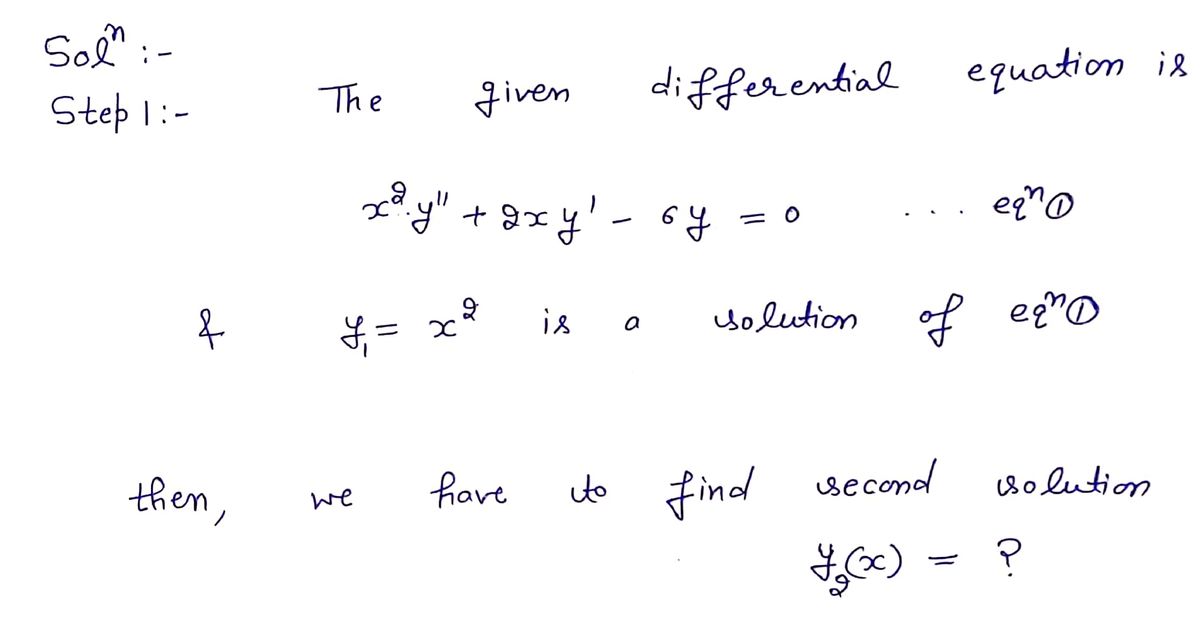 Solⁿ :-
Step 1 :- The given differential equation is
x².y'' + 2xy' - 6y = 0 ... eqⁿ①
& y₁ = x² is a solution of eqⁿ①
then, we have to find second solution
y₂(x) = ?